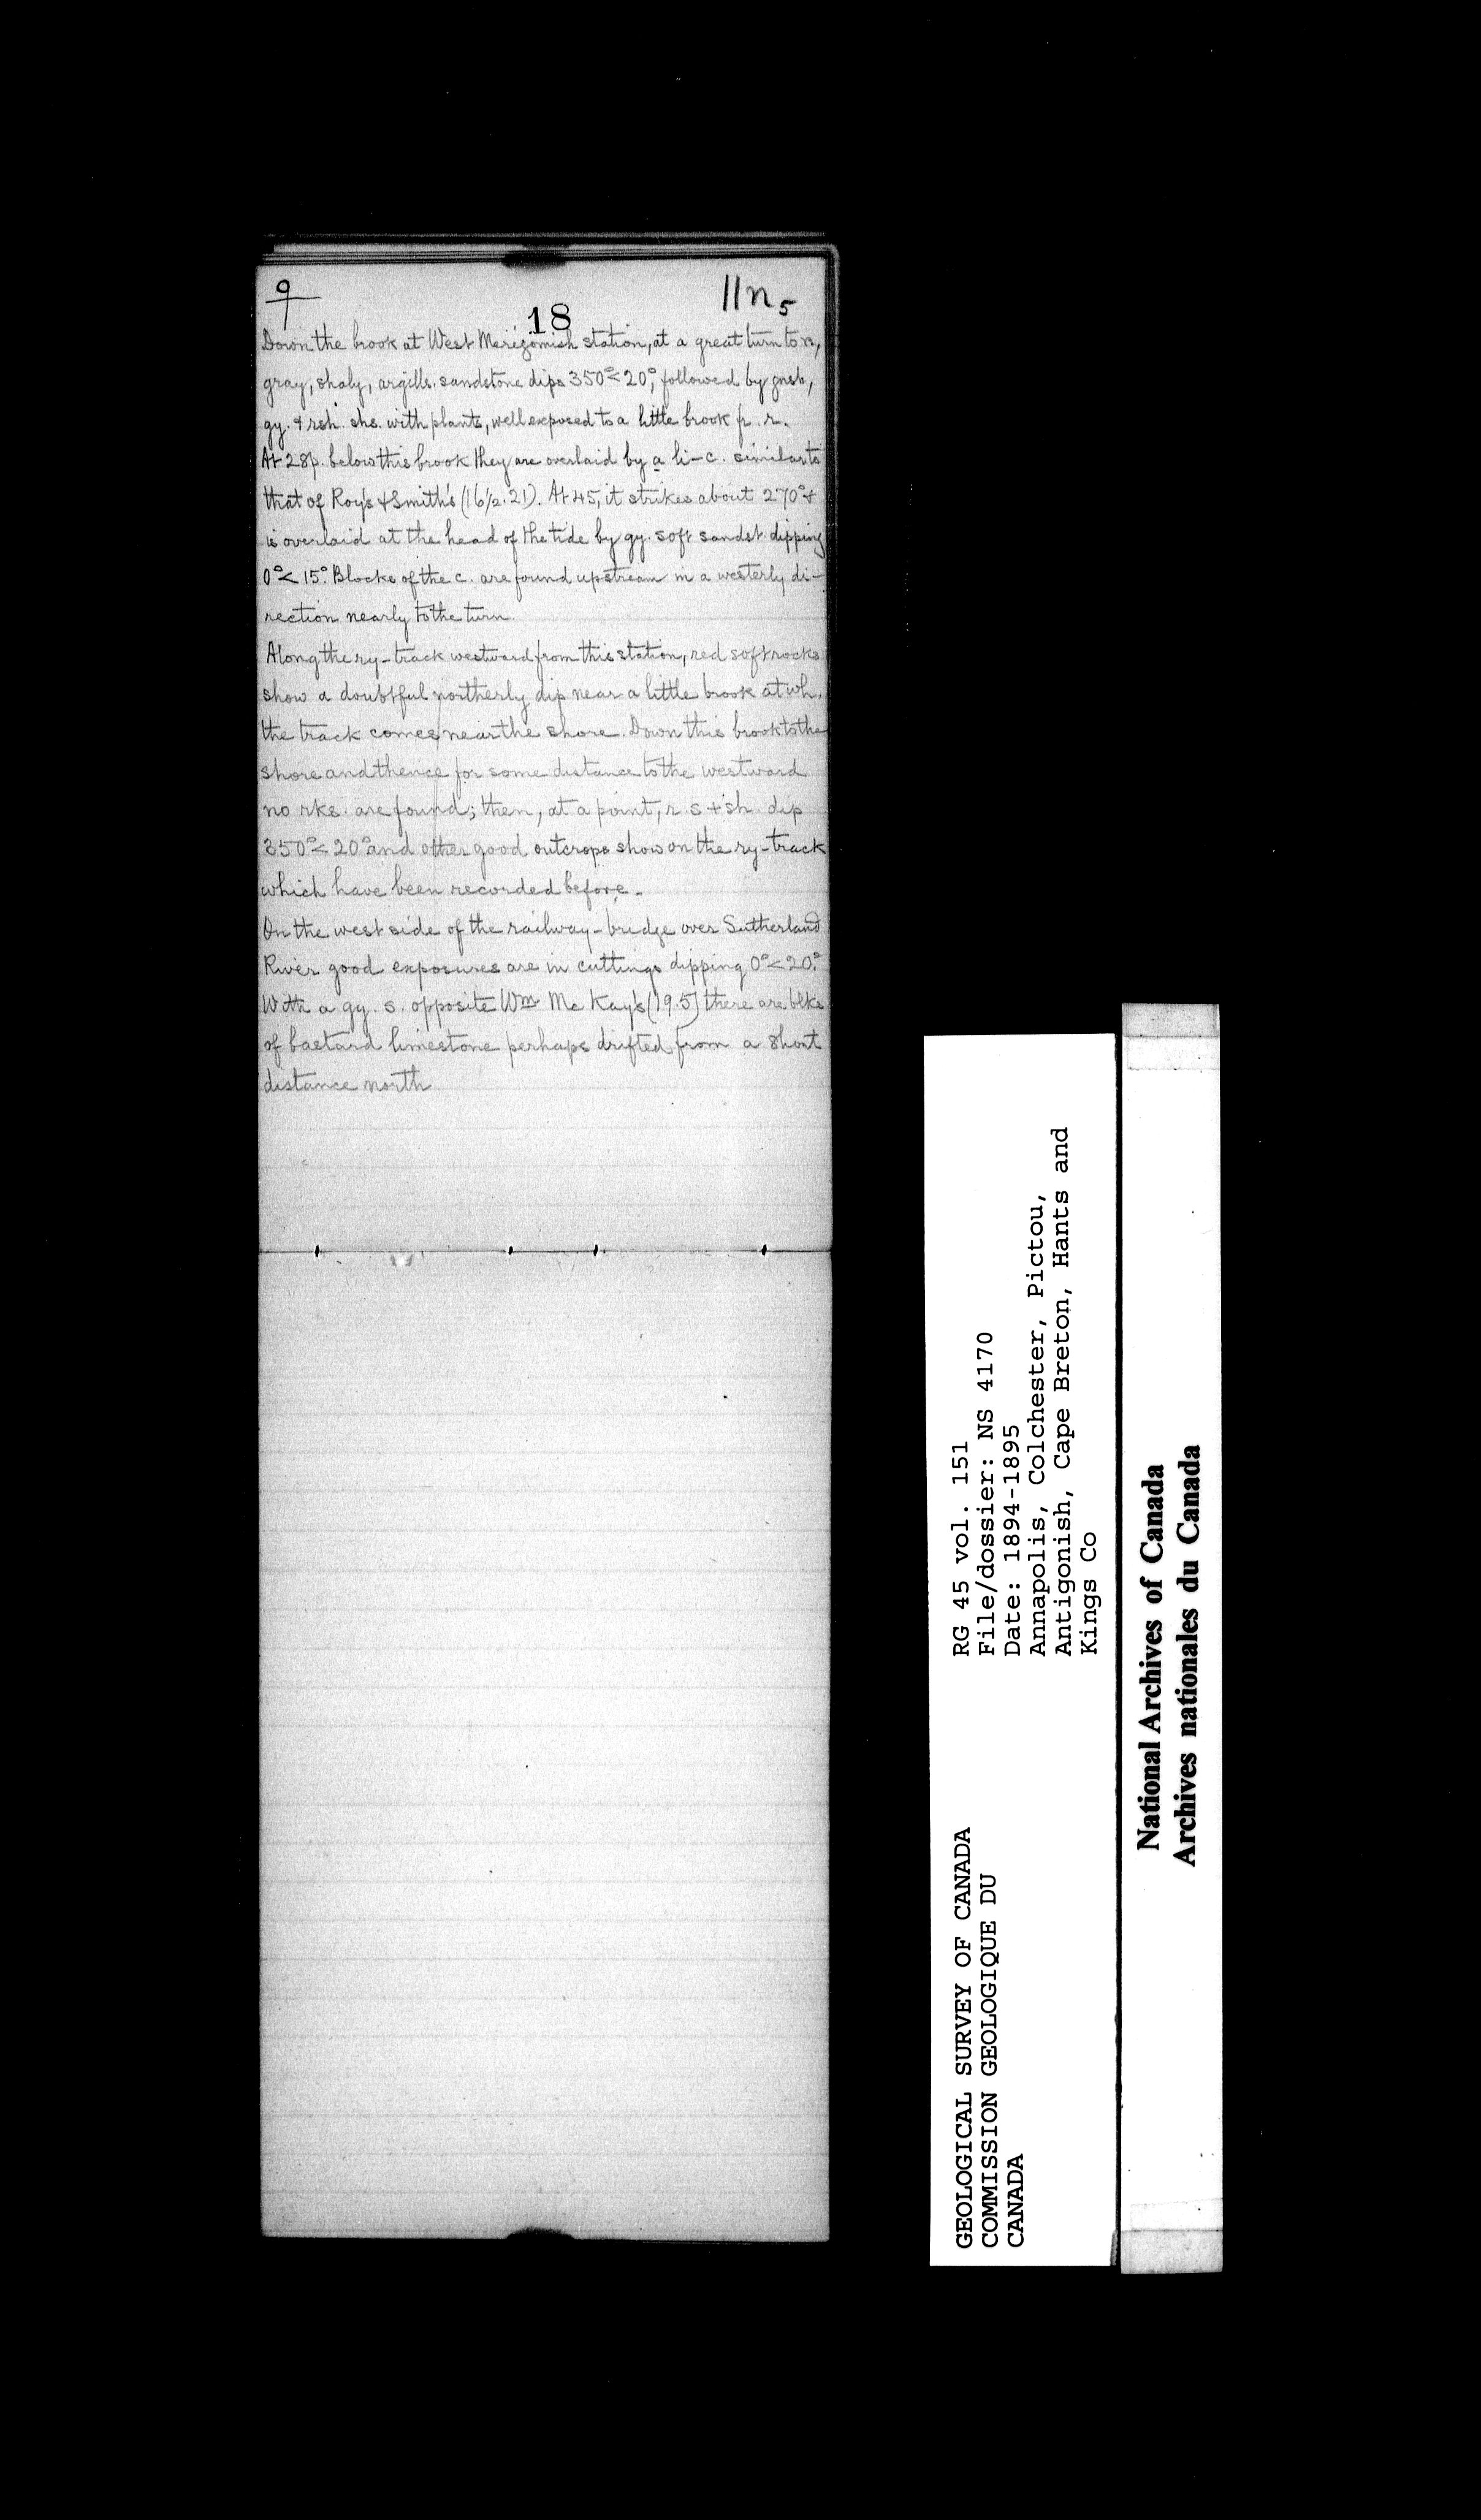 9
18
11n5
Down the brook at West Merigomish station, at a great turn to n,
gray, shaly, argills. sandstone dips 350°<20°, followed by gnsh,
gy. & rsh. shs. with plants, well exposed to a little brook fr. r.
At 28p. below this brook they are overlaid by a li-c. similar to
that of Roy's & Smith's (16½.21). At 45, it strikes about 270° &
is overlaid at the head of the tide by gy. soft sandst. dipping
0°<15°. Blocks of the c. are found upstream in a westerly di-
rection nearly to the turn.
Along the ry-track westward from this station, red soft rocks
show a doubtful northerly dip near a little brook at wh.
the track comes near the shore. Down this brook to the
shore and thence for some distance to the westward
no rks. are found; then, at a point, r. s + sh. dip
350°<20° and other good outcrops show on the ry-track
which have been recorded before.
On the west side of the railway-bridge over Sutherland
River good exposures are in cuttings dipping 0°<20°.
With a gy. s. opposite Wm McKay's (19.5) there are blks
of bastard limestone perhaps drifted from a short
distance north
RG 45 vol. 151
File/dossier: NS 4170
Date: 1894-1895
Annapolis, Colchester, Pictou,
Antigonish, Cape Breton, Hants and
Kings Co
GEOLOGICAL SURVEY OF CANADA
COMMISSION GEOLOGIQUE DU
CANADA
National Archives of Canada
Archives nationales du Canada